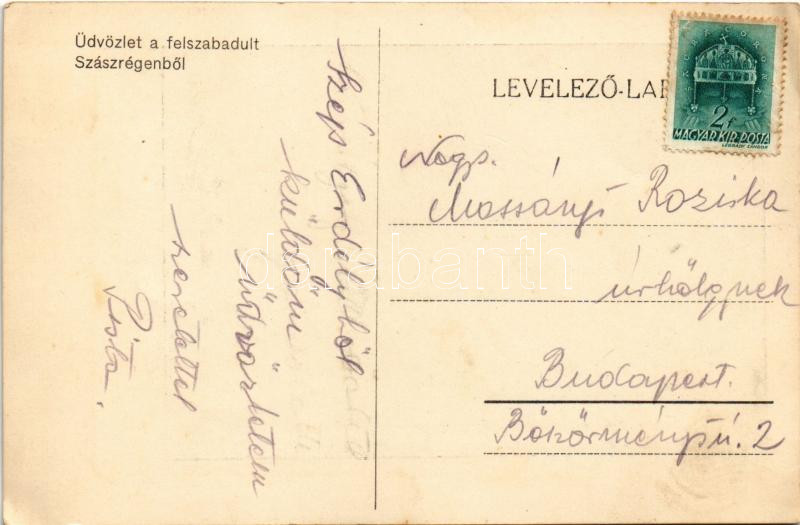 Üdvözlet a felszabadult
Szászrégenből
Szép Erdélyből
küldöm
üdvözletem
szeretettel
Pista.
LEVELEZŐ-LAP
SZENT KORONA
2f
MAGYAR KIR. POSTA
LÉGRÁDY SÁNDOR
Nags.
Massányi Roziska
úrhölgynek
Budapest.
Böszörményi ú. 2
darabanth